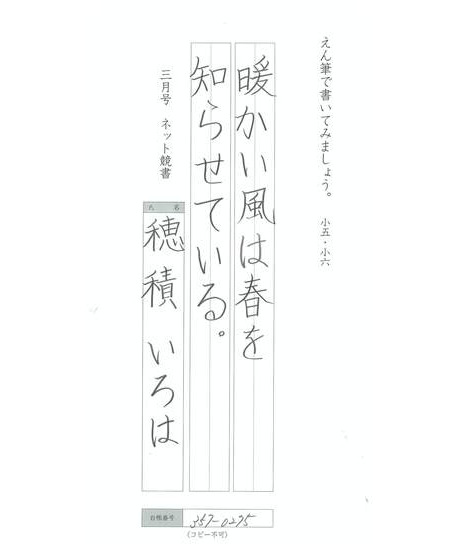 えん筆で書いてみましょう。 小五・小六
暖かい風は春を
知らせている。
三月号 ネット競書
氏名
穂積 いろは
台帳番号
357-0275
(コピー不可)